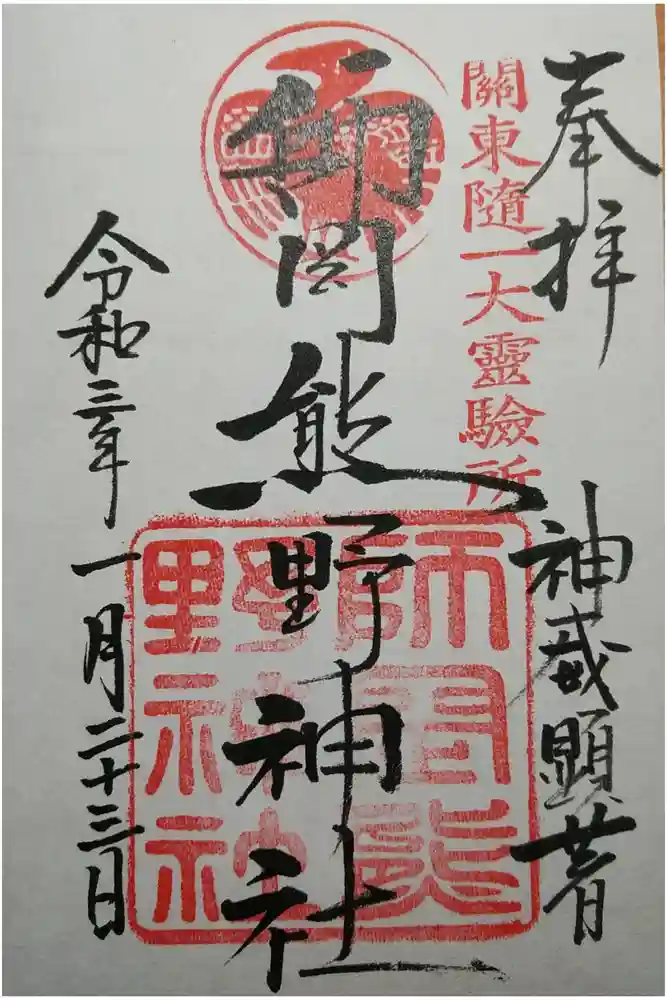 奉拝
關東隨一大靈驗所
神威顕著
師岡熊野神社
師岡熊
野神社
令和三年一月二十三日